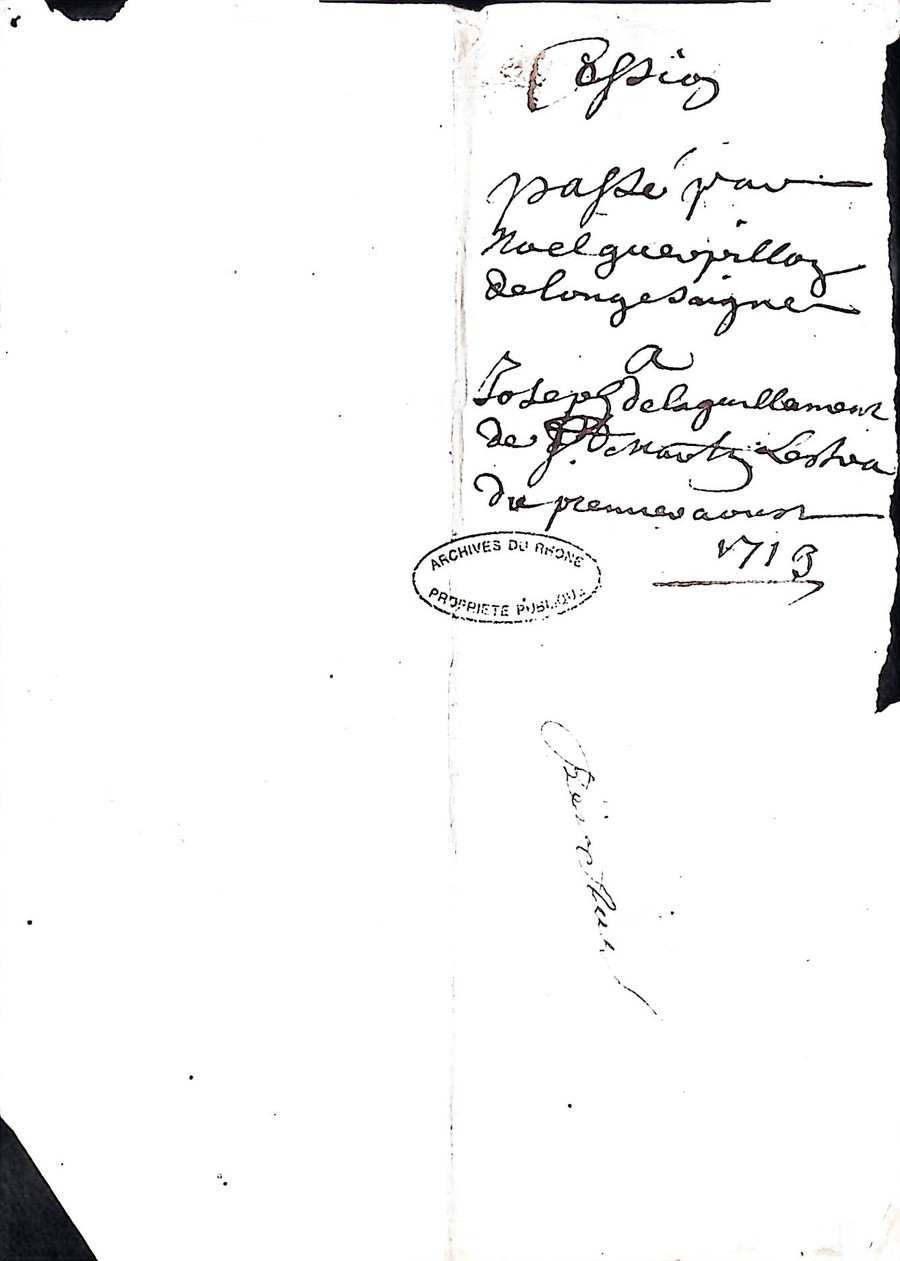 Cession
passé par
Noel guerpillon
de longesaigne
a
Joseph delaguillament
de St. Martin Lestra
du premier aoust
1713
ARCHIVES DU RHONE
PROPRIETE PUBLIQUE